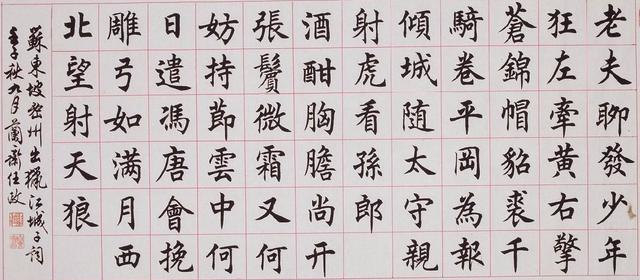 老夫聊發少年
狂左牽黃右擎
蒼錦帽貂裘千
騎卷平岡為報
傾城隨太守親
射虎看孫郎
酒酣胸膽尚开
張鬢微霜又何
妨持節雲中何
日遣馮唐會挽
雕弓如满月西
北望射天狼
蘇東坡密州出獵江城子詞
壬子秋九月蘭齋任政